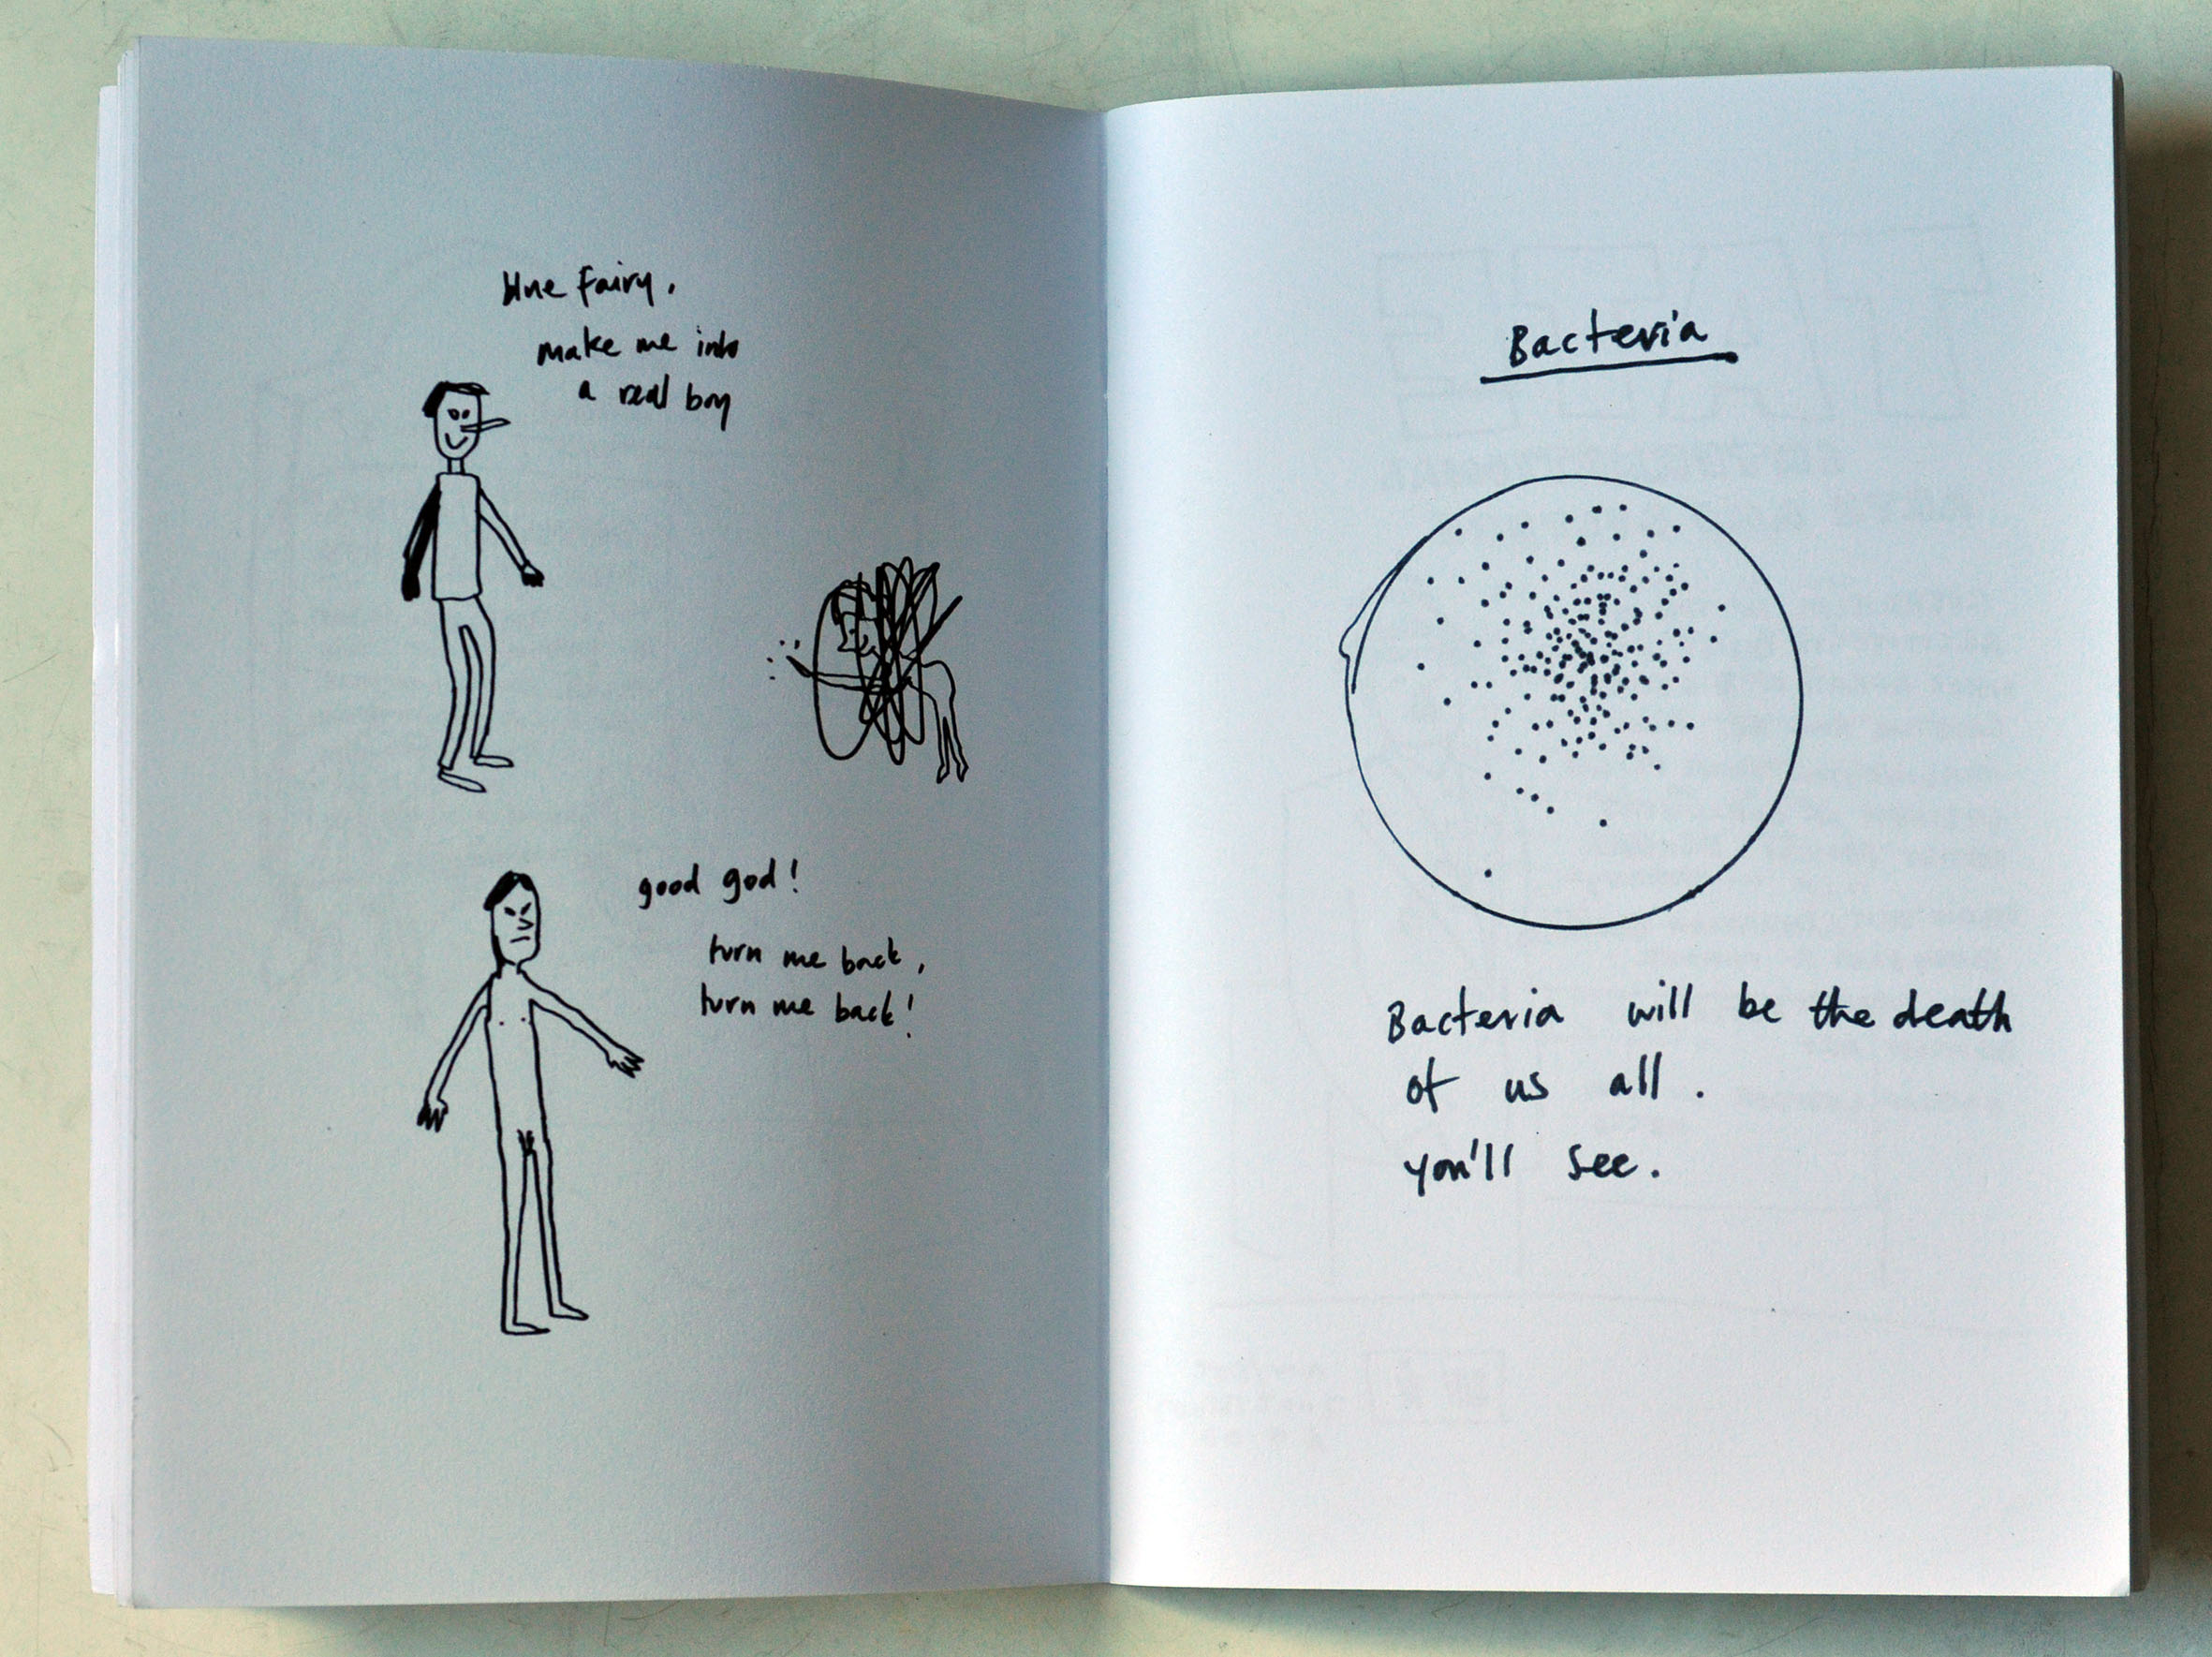 blue fairy,
make me into
a real boy
good god!
turn me back,
turn me back!
Bacteria
Bacteria will be the death
of us all.
you'll see.